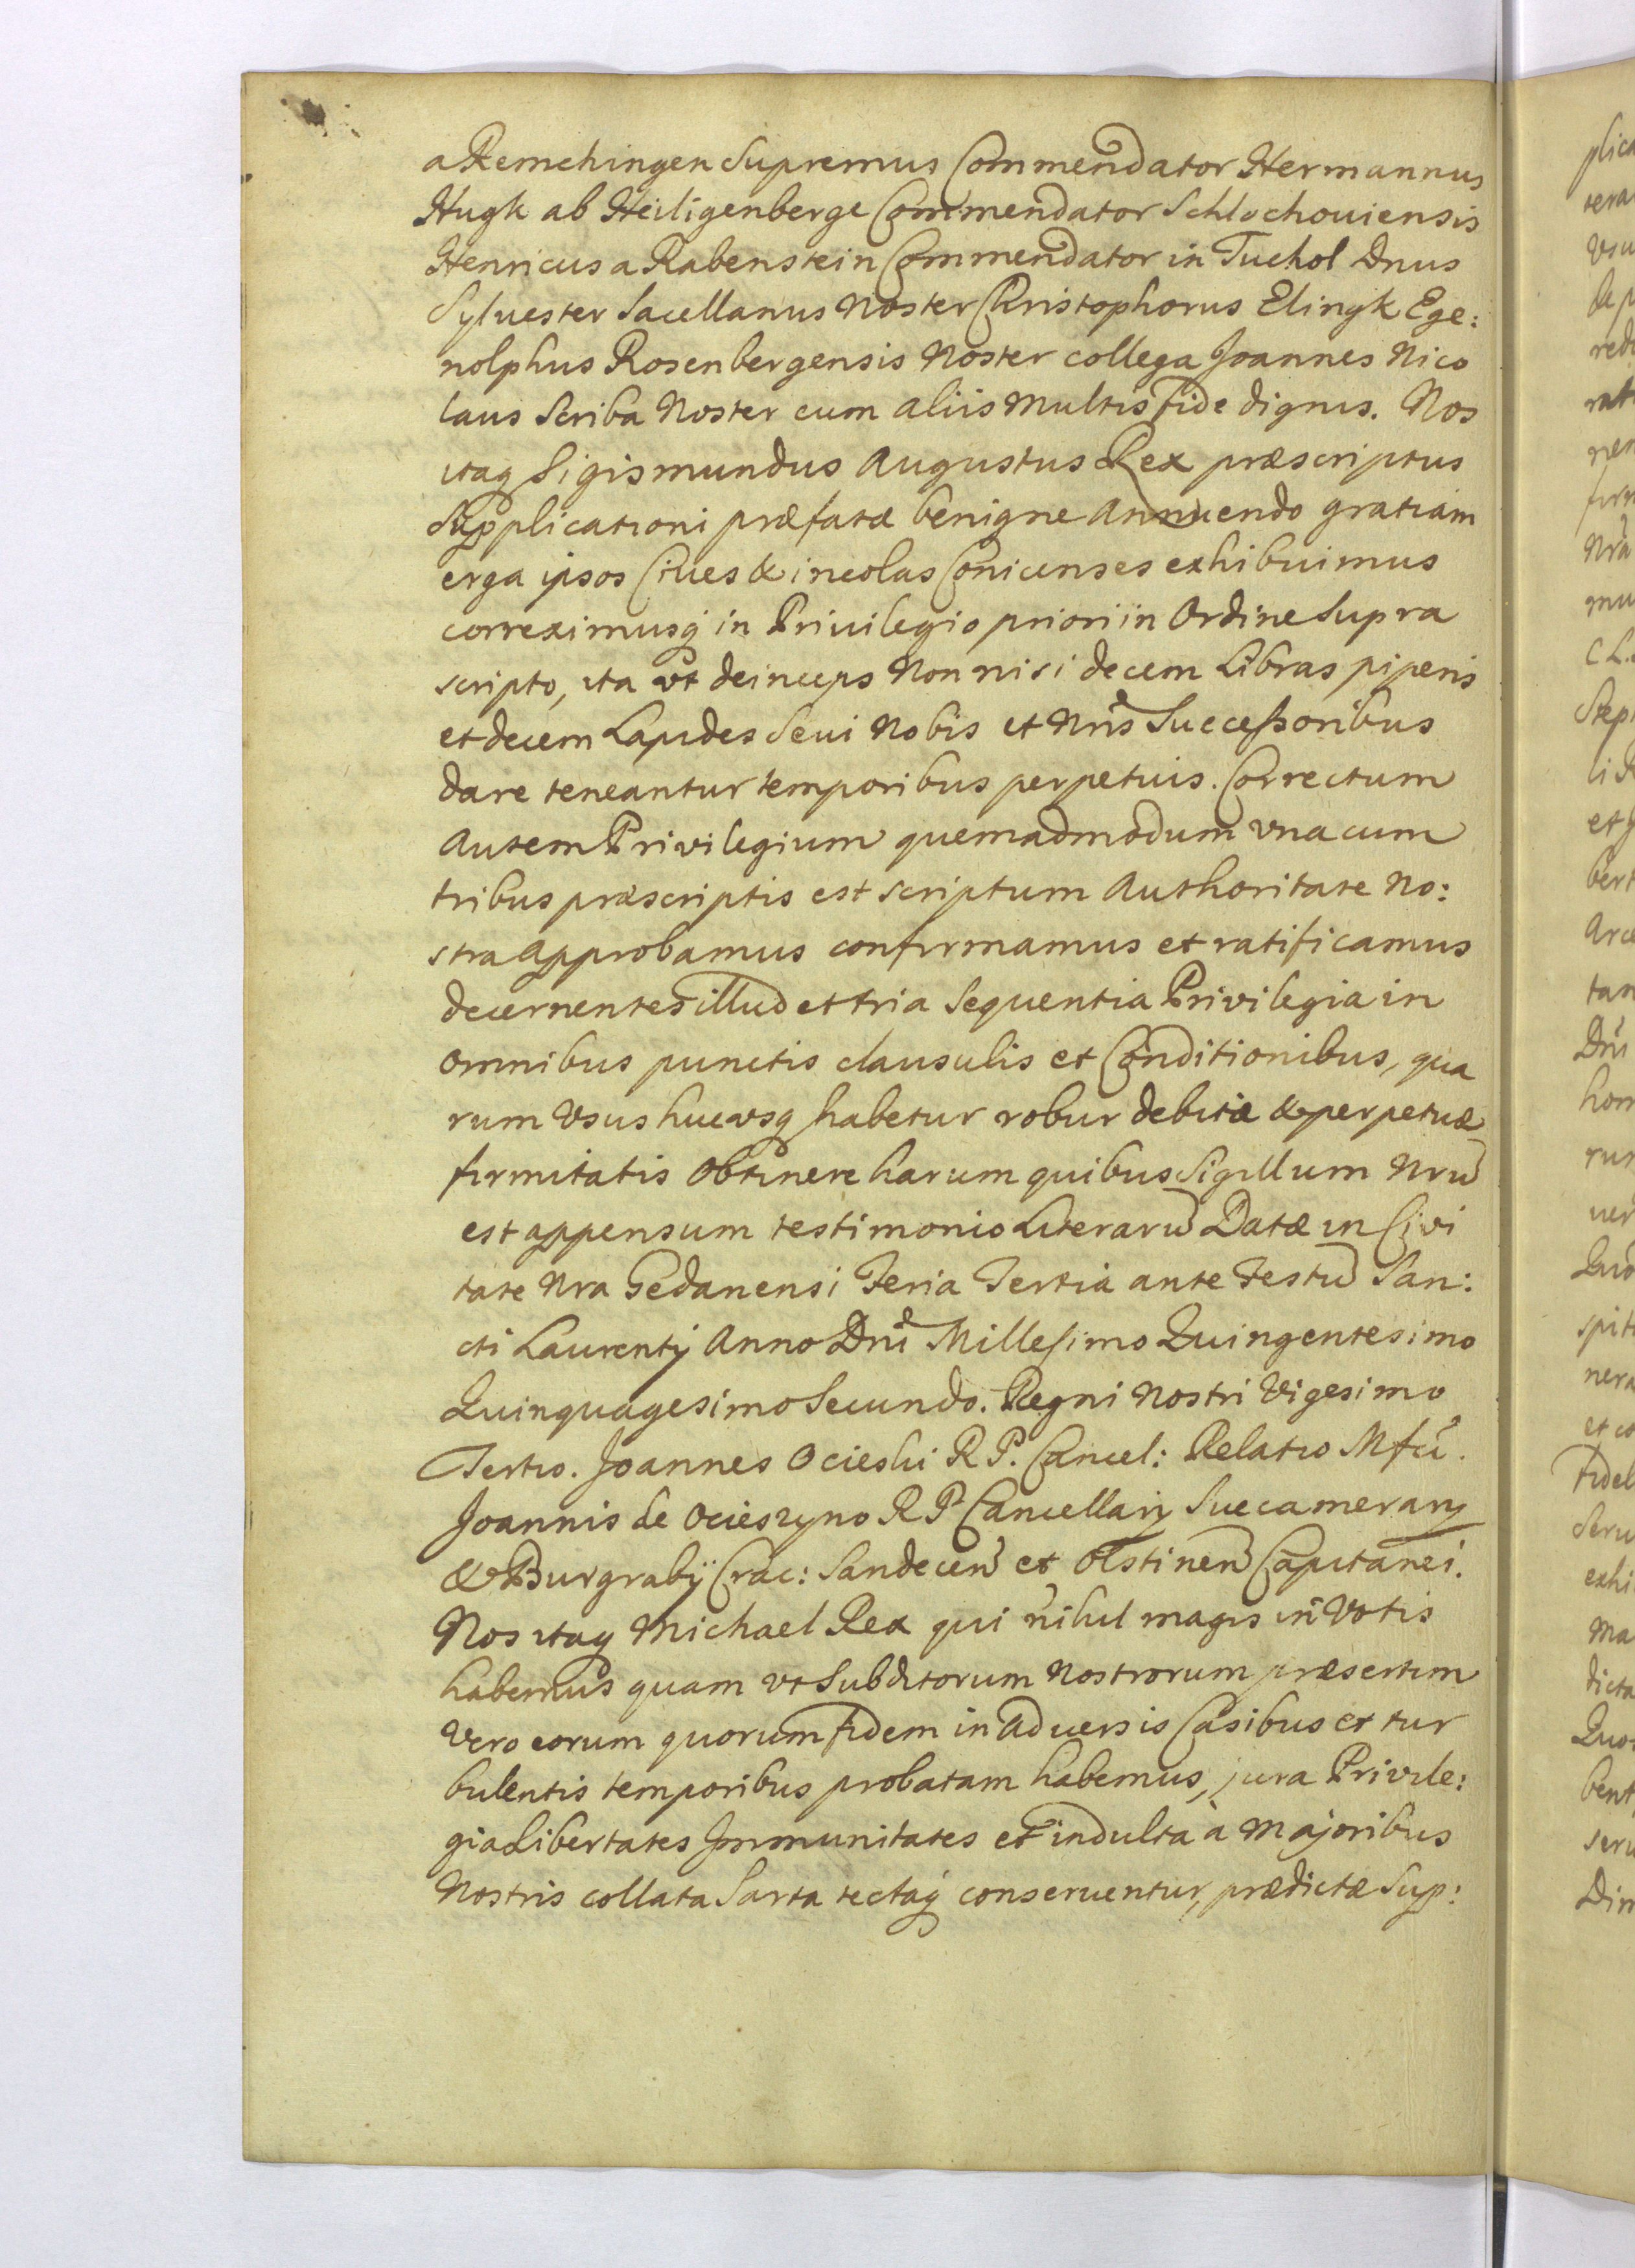 a Remchingen Supremus Commendator Hermannus
Hugk ab Heiligenberge Commendator Schlochouiensis
Henricus a Rabenstein Commendator in Tuchol Dnus
Syluester Sacellanus Noster Christophorus Elingk Ege:
nolphus Rosenbergensis Noster collega Joannes Nico
laus Scriba Noster cum aliis multis fide dignis. Nos
itaq Sigismundus Augustus Rex præscriptus
Supplicationi præfatæ benigne Annuendo gratiam
erga ipsos Ciues & incolas Conicenses exhibuimus
correximusq in Priuilegio priori in Ordine Supra
scripto, ita vt deinceps Non nisi decem Libras piperis
et decem Lapides Seui Nobis et Nris Successoribus
dare teneantur temporibus perpetuis. Correctum
Autem Privilegium quemadmodum vna cum
tribus præscriptis est scriptum Authoritate No:
stra Approbamus confirmamus et ratificamus
decernentes illud et tria Sequentia Privilegia in
omnibus punctis clausulis et Conditionibus, qua
rum Vsus hucvsq habetur robur debitæ & perpetuæ
firmitatis obtinere harum quibus Sigillum Nru
est appensum testimonio Literaru Datæ in Civi
tate Nra Gedanensi Feria Tertia ante Festu San:
cti Laurentij Anno Dni Millesimo Quingentesimo
Quinquagesimo Secundo. Regni Nostri Vigesimo
Tertio. Joannes Ocieski R P. Cancel: Relatio Mfci.
Joannis de Ocieszyno R P Cancellarij Succamerarij
& Burgrabij Crac: Sandecen et Olstinen Capitanei.
Nos itaq Michael Rex qui nihil magis in Votis
habemus quam vt Subditorum Nostrorum præsertim
Vero eorum quorum fidem in Aduersis Casibus et tur
bulentis temporibus probatam habemus, jura Privile:
gia Libertates Immunitates et indulta à Majoribus
Nostris collata Sarta tectaq conseruentur, prædictæ Sup: